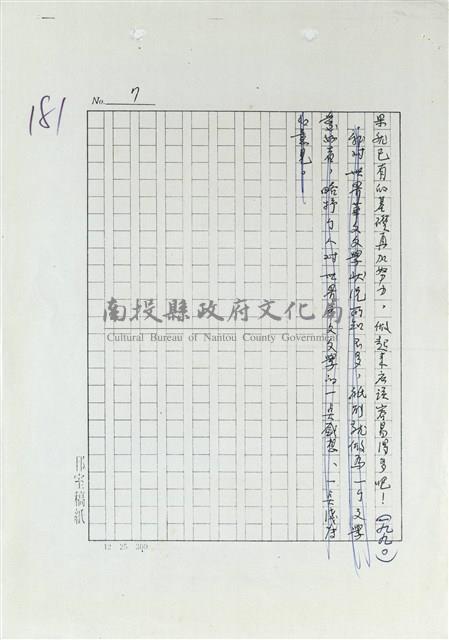 181
No. 7
果我已有的基礎真加努力，做起來應該容易得多吧！（一九九〇）
我對世界華文文學狀況所知不多，祇則就做為一个文學
愛好者，略抒个人對世界華文文學的一点感想、一点淺存
和意見。
南投縣政府文化局
Cultural Bureau of Nantou County Government
邱室稿紙
12 25 300